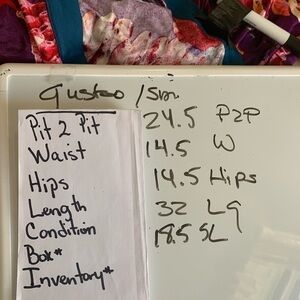 gustao /Sm
Pit 2 Pit
Waist
Hips
Length
Condition
Box*
Inventory*
24.5 P2P
14.5 W
14.5 Hips
32 Lg
18.5 SL